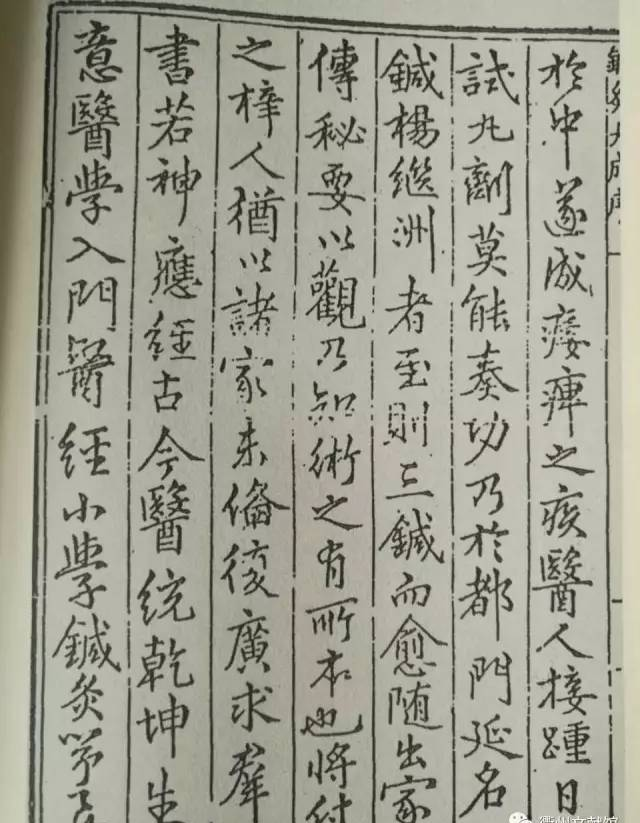 於中遂成痿痺之疾醫人接踵日
試丸劑莫能奏功乃於都門延名
鍼楊継洲者至則三鍼而愈随出家
傳秘要以觀乃知術之有所本也將付
之梓人猶以諸家未備復廣求羣
書若神應經古今醫统乾坤生
意醫學入門醫經小學鍼灸
衢州文献馆